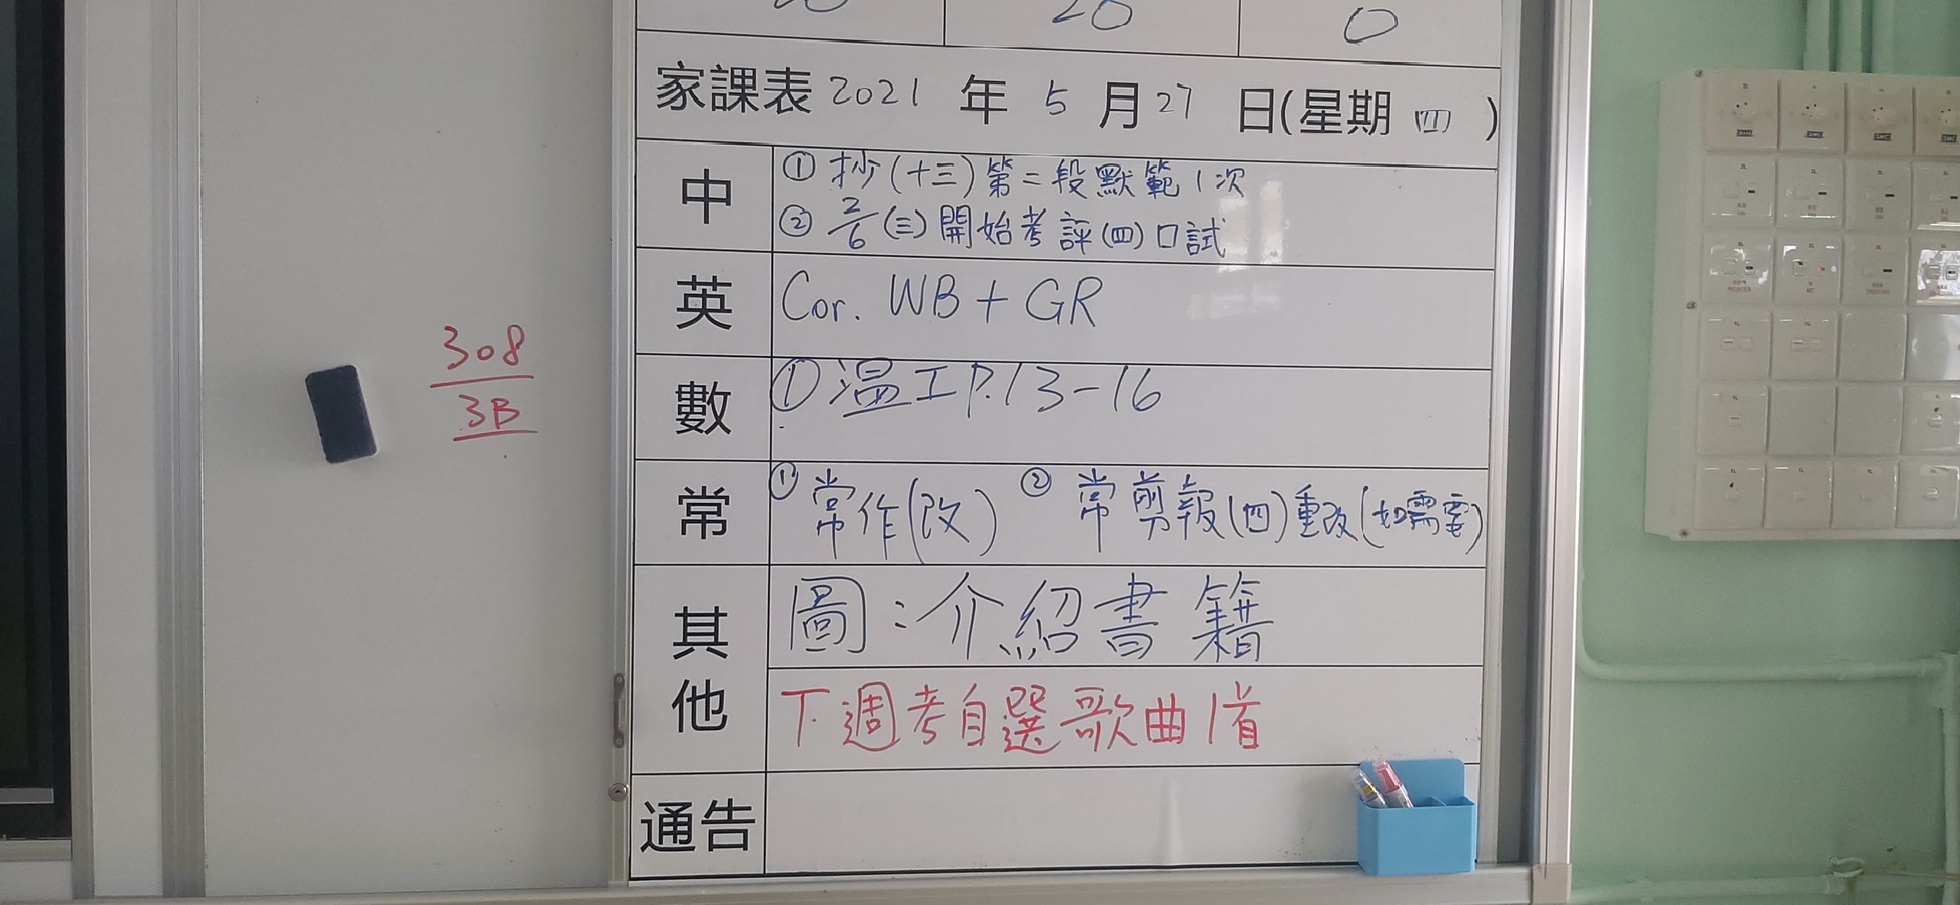 20 20 0
家課表 2021 年 5 月 27 日(星期 四 )
中
① 抄(十三)第二段默範1次
② 2/6 (三)開始考評(四)口試
英
Cor. WB + GR
數
① 溫工P.13-16
常
① 常作(改) ② 常剪報(四)重改(如需要)
其他
圖:介紹書籍
下週考自選歌曲1首
通告
308
3B